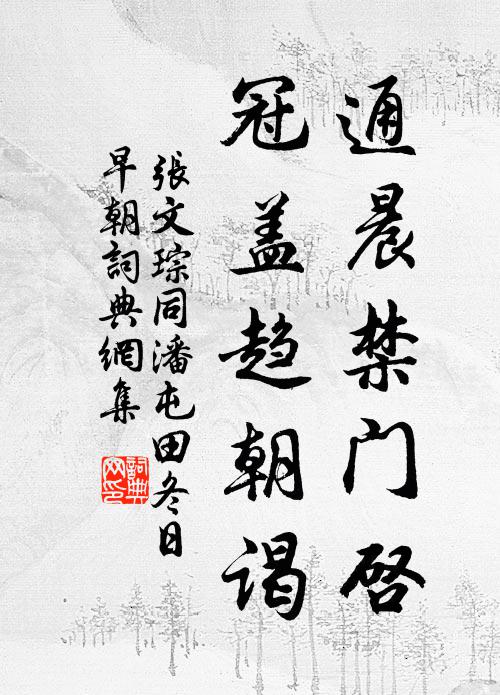 通晨禁门啓
冠盖趋朝谒
張文琮同潘屯田冬日
早朝詞典網集
詞典
网印